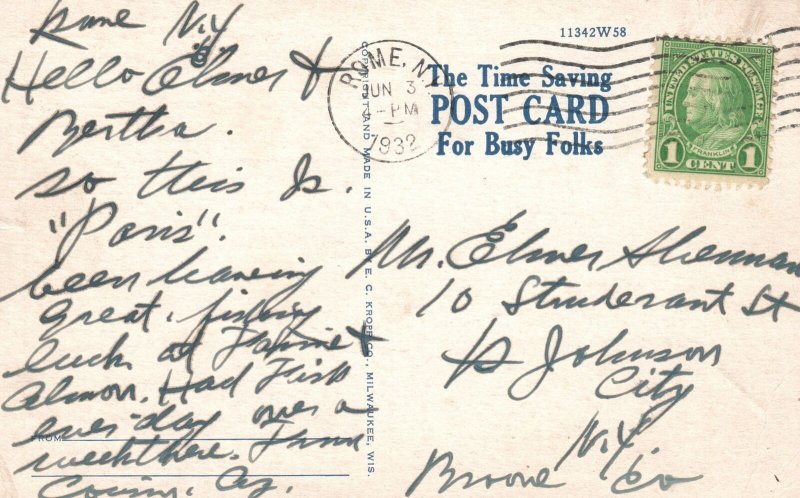 Rome N.Y
Hello Elmer &
Bertha.
so this Is.
"Paris".
been having
Great. fishing
luck at &
Had Fish
ever-day over a
week there. From
Cousin.
FROM
COPYRIGHT AND MADE IN U.S.A. BY E. C. KROPP CO., MILWAUKEE, WIS.
11342W58
ROME, N.Y.
JUN 3
4-PM
1932
The Time Saving
POST CARD
For Busy Folks
UNITED STATES POSTAGE
FRANKLIN
1 CENT 1
Mr. Elmer Sherman
10 St
Johnson
City
N.Y.
Broome Co